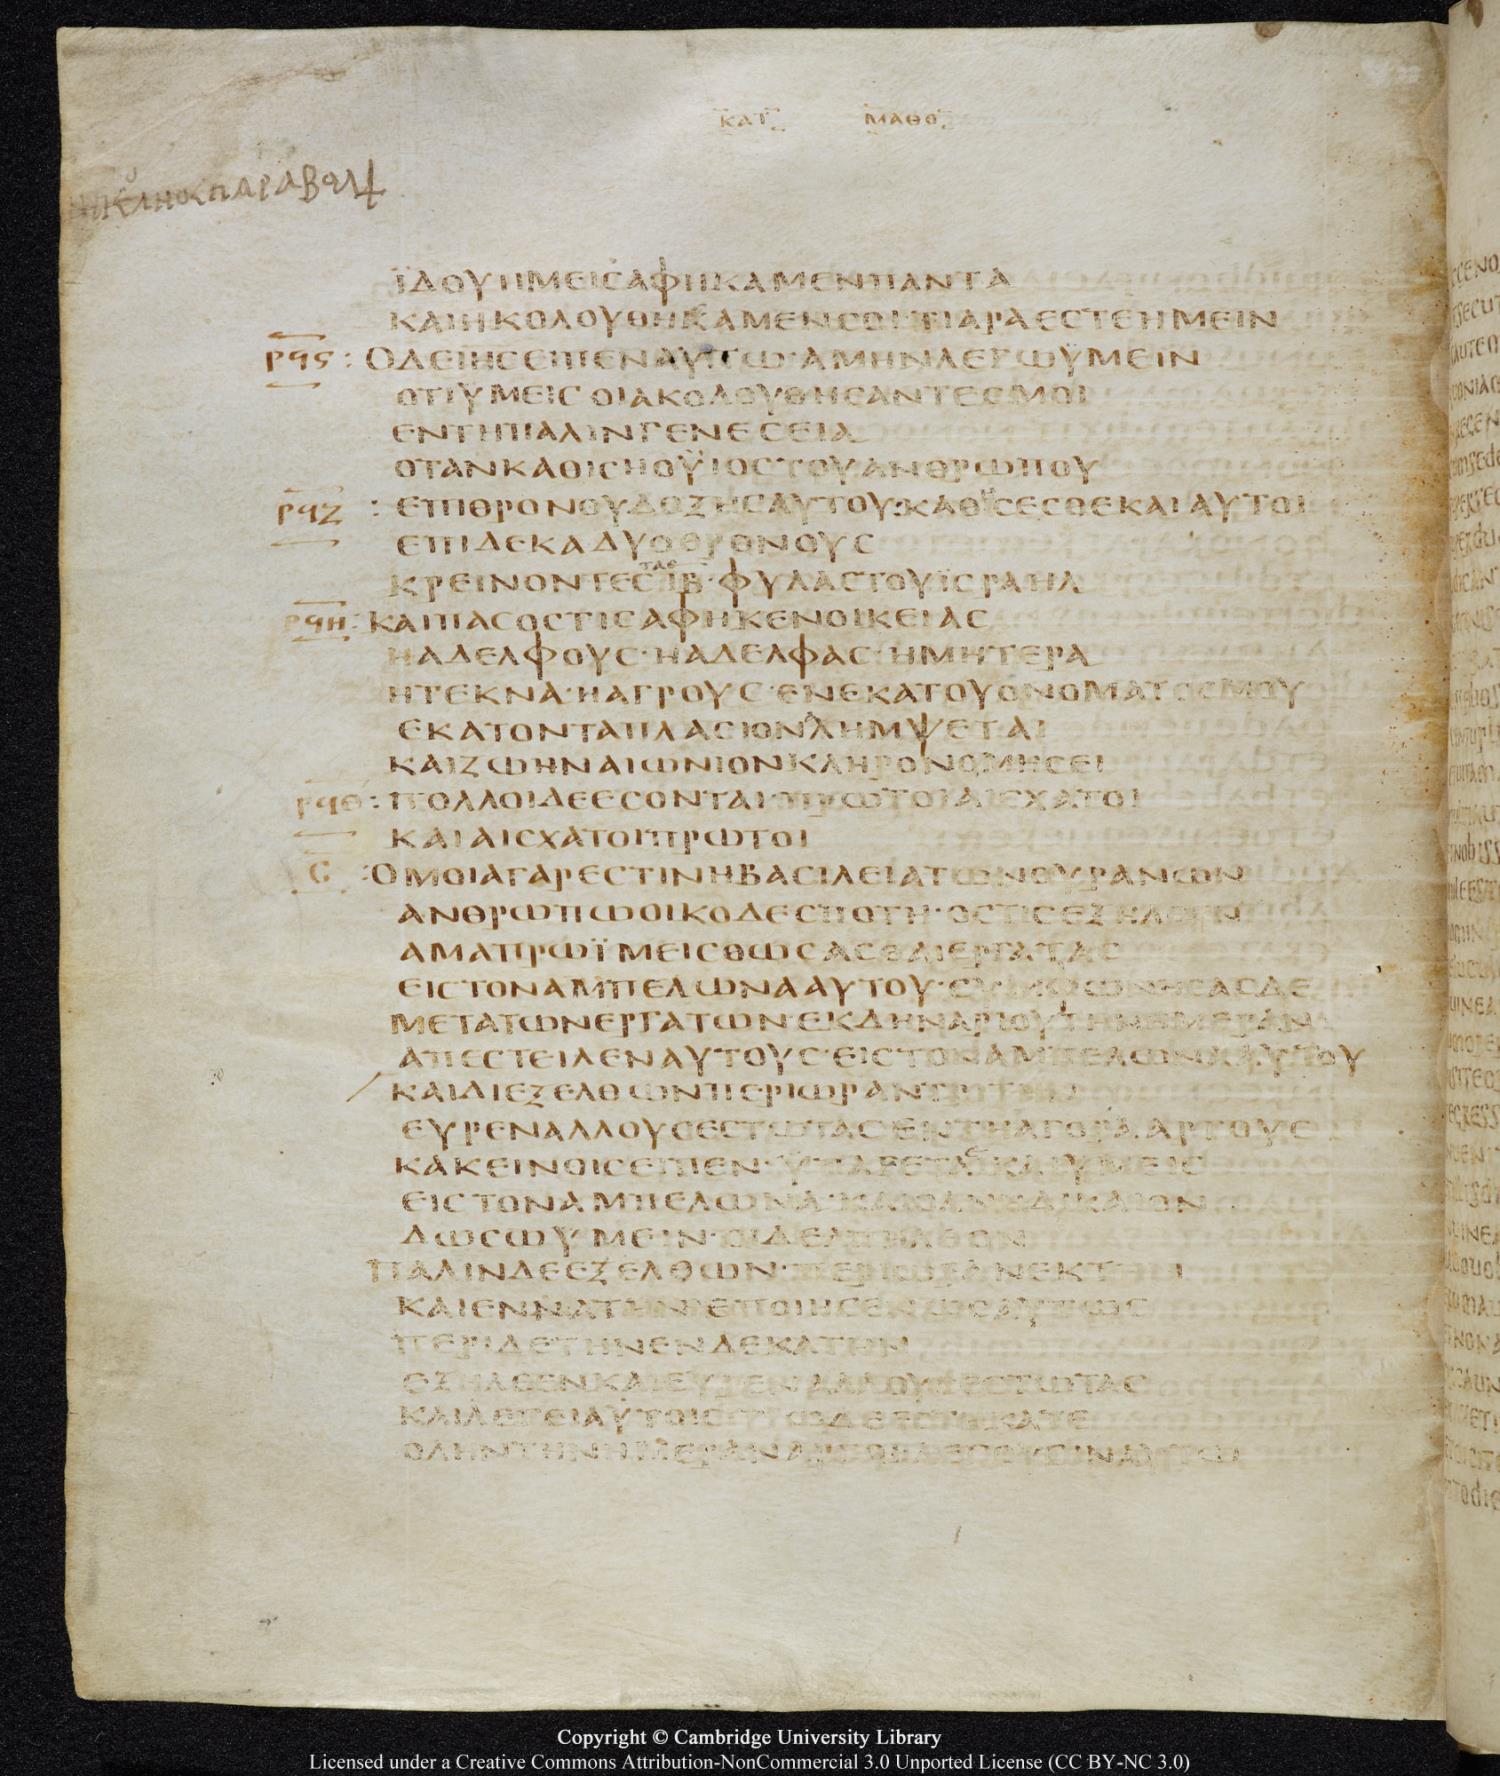 ΚΑΤ ΜΑΘΘ
ΪΔΟΥΗΜΕΙΣΑΦΗΚΑΜΕΝΠΑΝΤΑ
ΚΑΙΗΚΟΛΟΥΘΗΚΑΜΕΝΣΟΙ·ΤΙΑΡΑΕΣΤΕΗΜΕΙΝ
ΡϤϚ : ΟΔΕΙΗΣΕΙΠΕΝΑΥΤΩ·ΑΜΗΝΛΕΓΩΫΜΕΙΝ
ΟΤΙΫΜΕΙΣ ΟΙΑΚΟΛΟΥΘΗΣΑΝΤΕΣΜΟΙ
ΕΝΤΗΠΑΛΙΝΓΕΝΕΣΕΙΑ
ΟΤΑΝΚΑΘΙΣΗΟΫΙΟΣΤΟΥΑΝΘΡΩΠΟΥ
ΡϤΖ : ΕΠΙΘΡΟΝΟΥΔΟΞΗΣΑΥΤΟΥ:ΚΑΘΗΣΕΣΘΕΚΑΙΑΥΤΟΙ
ΕΠΙΔΕΚΑΔΥΟΘΡΟΝΟΥΣ
ΚΡΕΙΝΟΝΤΕΣΤΑΣΙΒ·ΦΥΛΑΣΤΟΥΪΣΡΑΗΛ
ΡϤΗ : ΚΑΙΠΑΣΟΣΤΙΣΑΦΗΚΕΝΟΙΚΕΙΑΣ
ΗΑΔΕΛΦΟΥΣ·ΗΑΔΕΛΦΑΣ·ΗΜΗΤΕΡΑ
ΗΤΕΚΝΑ·ΗΑΓΡΟΥΣ·ΕΝΕΚΑΤΟΥΟΝΟΜΑΤΟΣΜΟΥ
ΕΚΑΤΟΝΤΑΠΛΑΣΙΟΝΛΗΜΨΕΤΑΙ
ΚΑΙΖΩΗΝΑΙΩΝΙΟΝΚΛΗΡΟΝΟΜΗΣΕΙ
ΡϤΘ : ΠΟΛΛΟΙΔΕΕΣΟΝΤΑΙ·ΠΡΩΤΟΙΑΙΣΧΑΤΟΙ
ΚΑΙΑΙΣΧΑΤΟΙΠΡΩΤΟΙ
Σ :ΟΜΟΙΑΓΑΡΕΣΤΙΝΗΒΑΣΙΛΕΙΑΤΩΝΟΥΡΑΝΩΝ
ΑΝΘΡΩΠΩΟΙΚΟΔΕΣΠΟΤΗ·ΟΣΤΙΣΕΞΗΛΘΕΝ
ΑΜΑΠΡΩΪΜΕΙΣΘΩΣΑΣΘΑΙΕΡΓΑΤΑΣ
ΕΙΣΤΟΝΑΜΠΕΛΩΝΑΑΥΤΟΥ·ΣΥΜΦΩΝΗΣΑΣΔΕ
ΜΕΤΑΤΩΝΕΡΓΑΤΩΝ·ΕΚΔΗΝΑΡΙΟΥΤΗΝΗΜΕΡΑΝ
ΑΠΕΣΤΕΙΛΕΝΑΥΤΟΥΣ·ΕΙΣΤΟΝΑΜΠΕΛΩΝΑΑΥΤΟΥ
ΚΑΙΔΙΕΞΕΛΘΩΝΠΕΡΙΩΡΑΝΤΡΙΤΗΝ
ΕΥΡΕΝΑΛΛΟΥΣΕΣΤΩΤΑΣΕΝΤΗΑΓΟΡΑΑΡΓΟΥΣ
ΚΑΚΕΙΝΟΙΣΕΙΠΕΝ·ΫΠΑΓΕΤΑΙΚΑΙΫΜΕΙΣ
ΕΙΣΤΟΝΑΜΠΕΛΩΝΑ·ΚΑΙΟΑΝΗΔΙΚΑΙΟΝ
ΔΩΣΩΫΜΕΙΝ·ΟΙΔΕΑΠΗΛΘΟΝ
ΠΑΛΙΝΔΕΕΞΕΛΘΩΝ·ΠΕΡΙΩΡΑΝΕΚΤΗΝ
ΚΑΙΕΝΝΑΤΗΝ·ΕΠΟΙΗΣΕΝΩΣΑΥΤΩΣ
ΠΕΡΙΔΕΤΗΝΕΝΔΕΚΑΤΗΝ
ΕΞΗΛΘΕΝΚΑΙΕΥΡΕΝΑΛΛΟΥΣΕΣΤΩΤΑΣ
ΚΑΙΛΕΓΕΙΑΥΤΟΙΣΤΙΩΔΕΕΣΤΗΚΑΤΕ
ΟΛΗΝΤΗΝΗΜΕΡΑΝΑΡΓΟΙ·ΛΕΓΟΥΣΙΝΑΥΤΩ